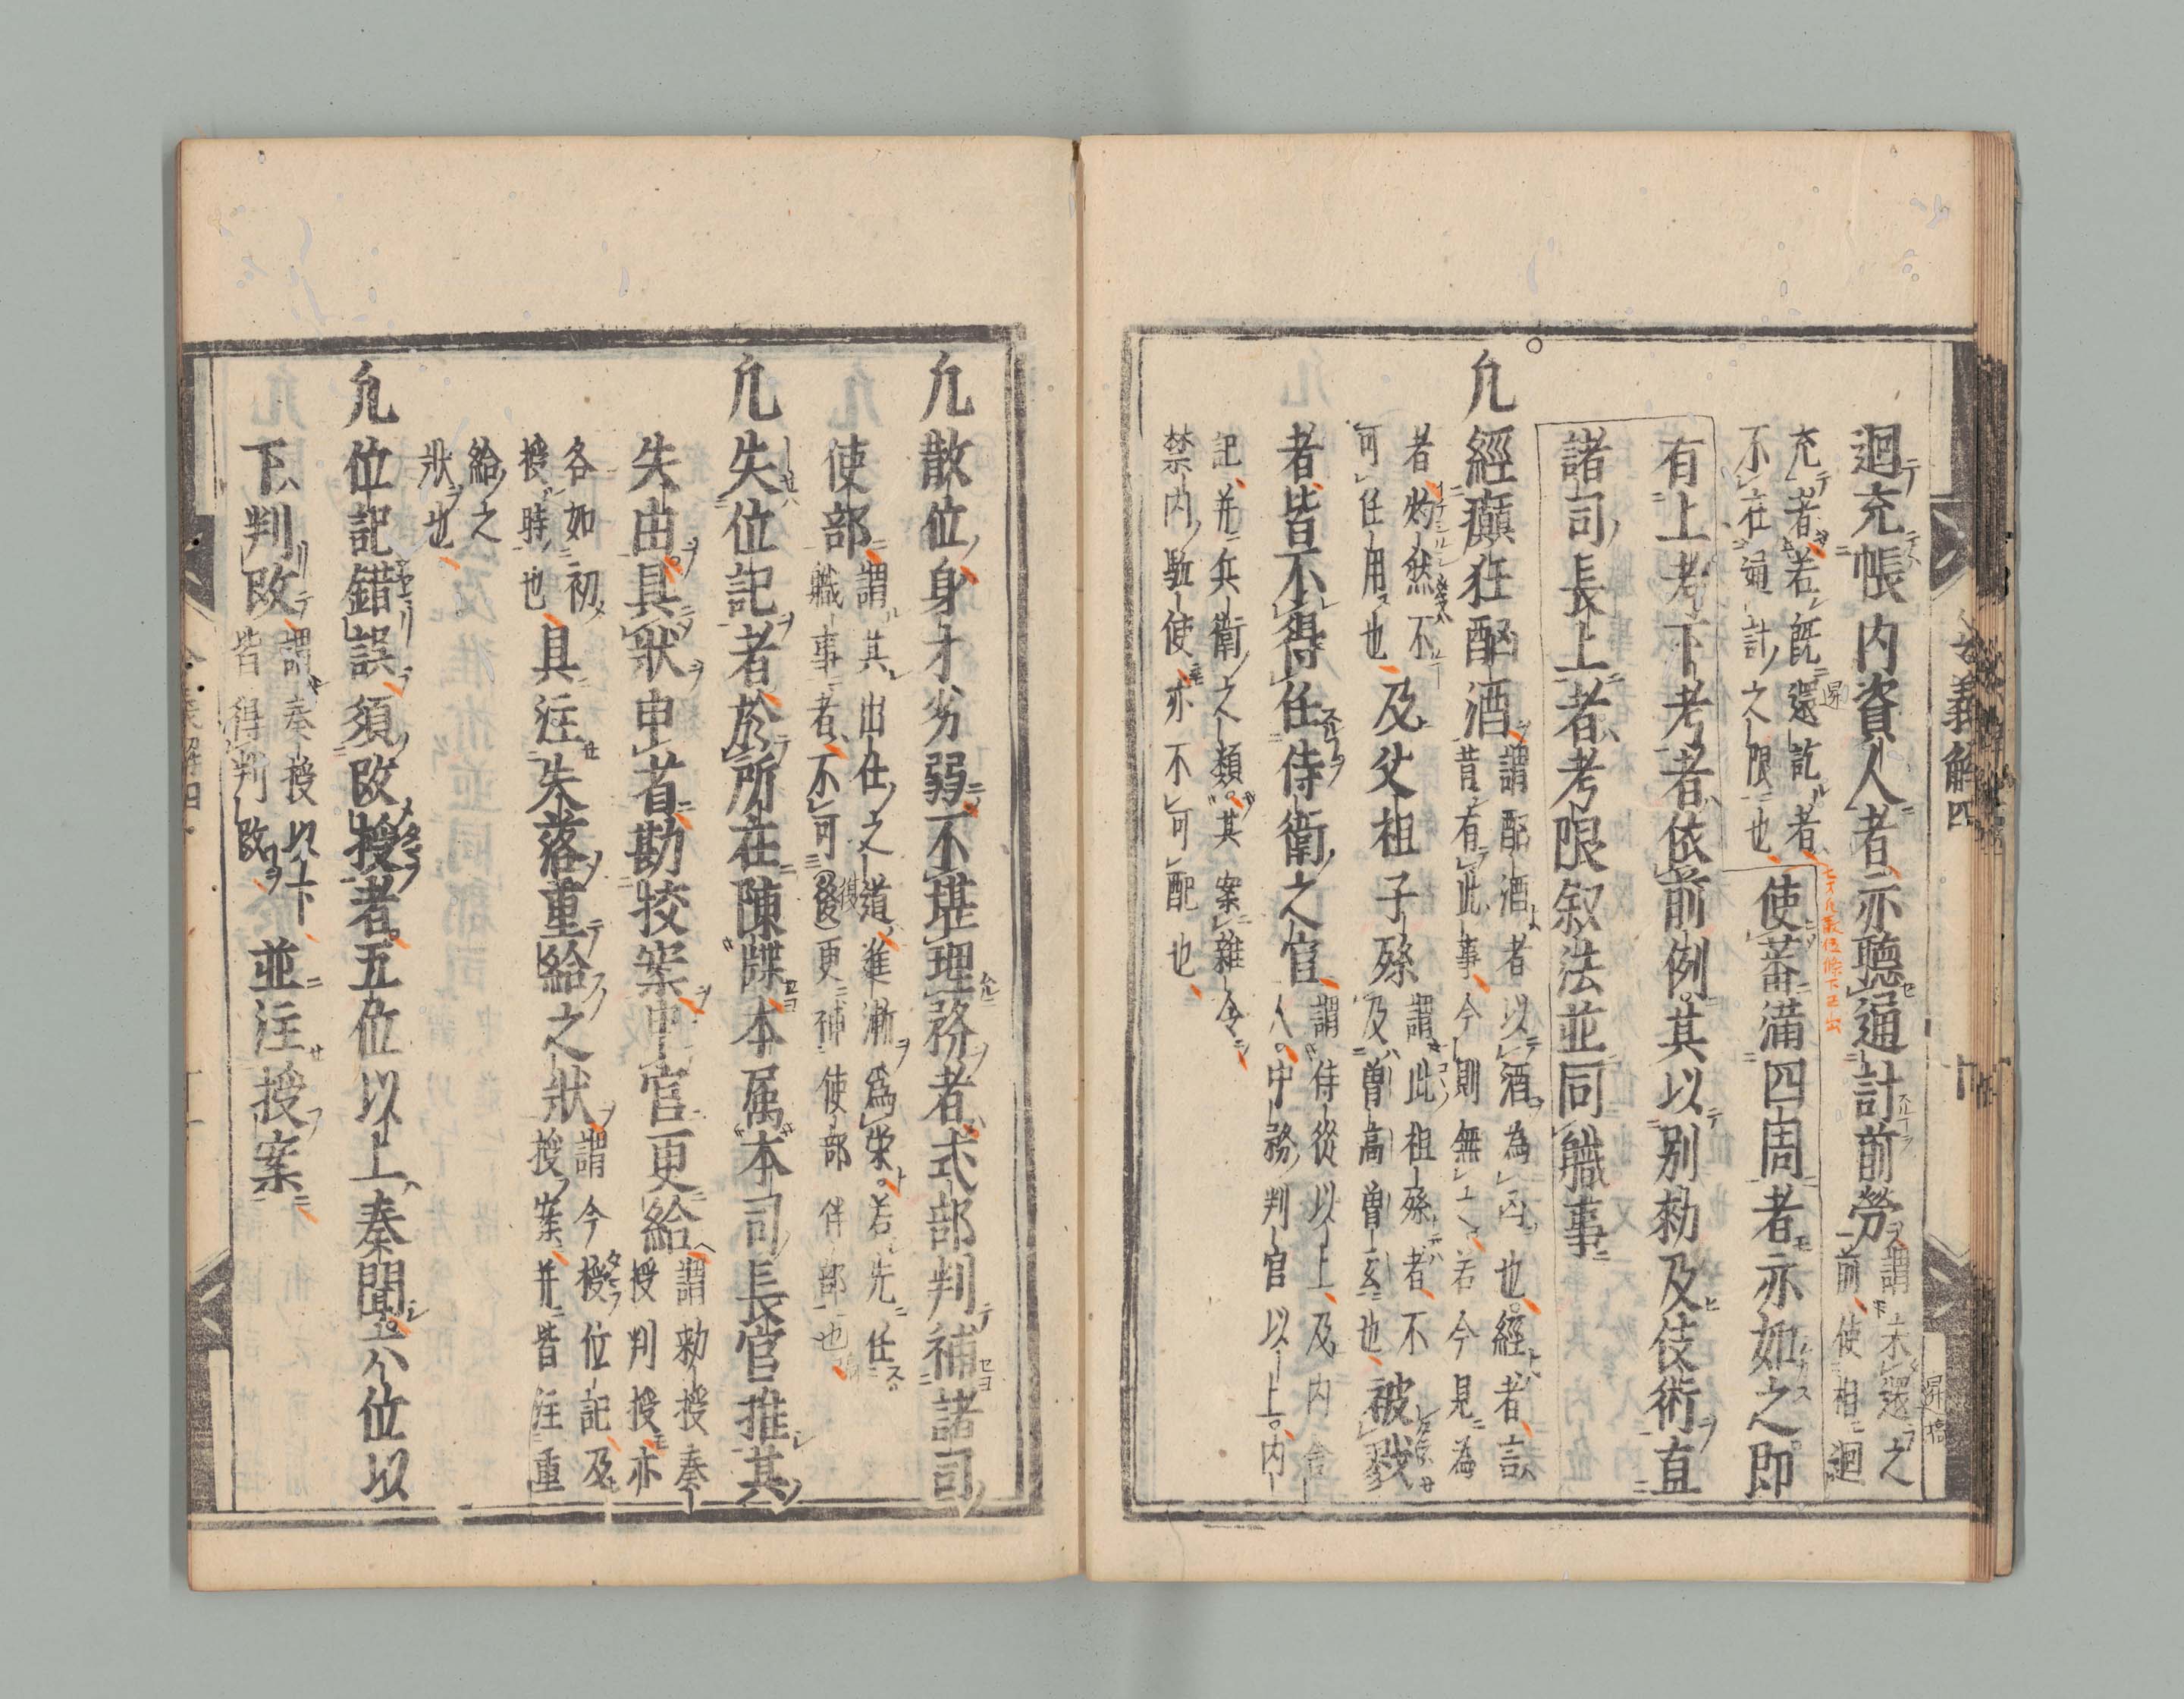 迴充帳内資人者亦聴通計前勞謂未還之
前使相迴
充者若既還訖者
不在通計之限也使蕃満四周者亦如之即
有上考下考者依前例其以別勅及伎術直
諸司長上者考限叙法並同職事
凢經癲狂酗酒謂酗酒者以酒為凶也經者言
昔有此事今則無之若今見為
者灼然不
可任用也及父祖子孫謂此祖孫者不
及曽高曽玄也被戮
者皆不得任侍衛之官謂侍從以上及内舎
人中務判官以上内
記并兵衛之類其案雜令
禁内駈使亦不可配也
凢散位身才劣弱不堪理務者式部判補諸司
使部謂其出仕之道進漸爲栄若先任
職事者不可後更補使部伴部也
凢失位記者於所在陳牒本属本司長官推其
失由具狀申省勘校案申官更給謂勅授奏
授判授亦
各如初
授時也具注失落重給之狀謂今授位記及
授案并皆注重
給之
狀也
凢位記錯誤須改授者五位以上奏聞六位以
下判改謂奏授以下
皆得判改並注授案
令義解四
十